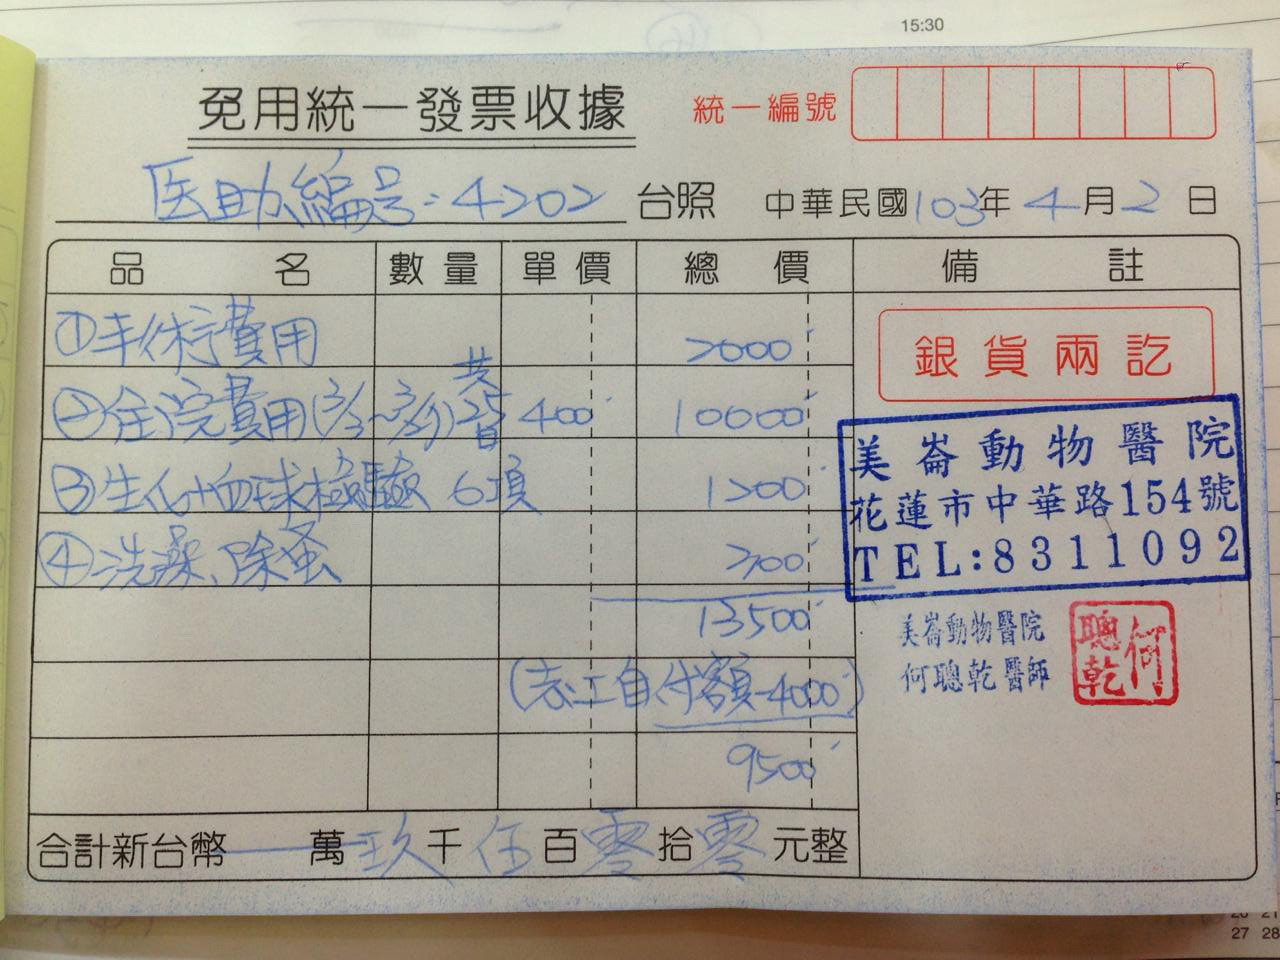 15:30
免用統一發票收據
統一編號
医助編号:4202 台照 中華民國103年4月2日
品名 數量 單價 總價 備註
①手術費用 2000
②住院費用(3/3~3/31) 共25日 400 10000
③生化+血球檢驗 6項 1200
④洗澡、除蚤 300
13500
(志工自付額-4000)
9500
合計新台幣 萬玖千伍百零拾零元整
銀貨兩訖
美崙動物醫院
花蓮市中華路154號
TEL:8311092
美崙動物醫院
何聰乾醫師
何聰乾
20 21
27 28